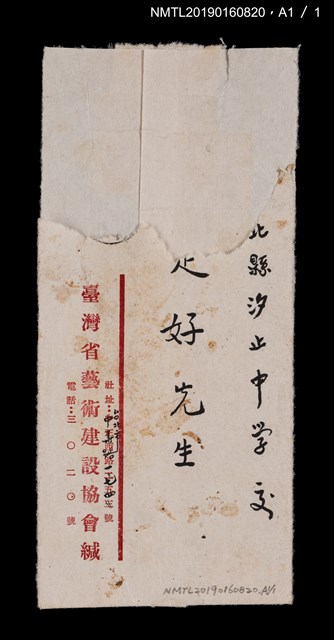 NMTL20190160820，A1 / 1
北縣汐止中学校
定好先生
臺灣省藝術建設協會緘
電話：三〇二〇號
NMTL20190160820.A1/1